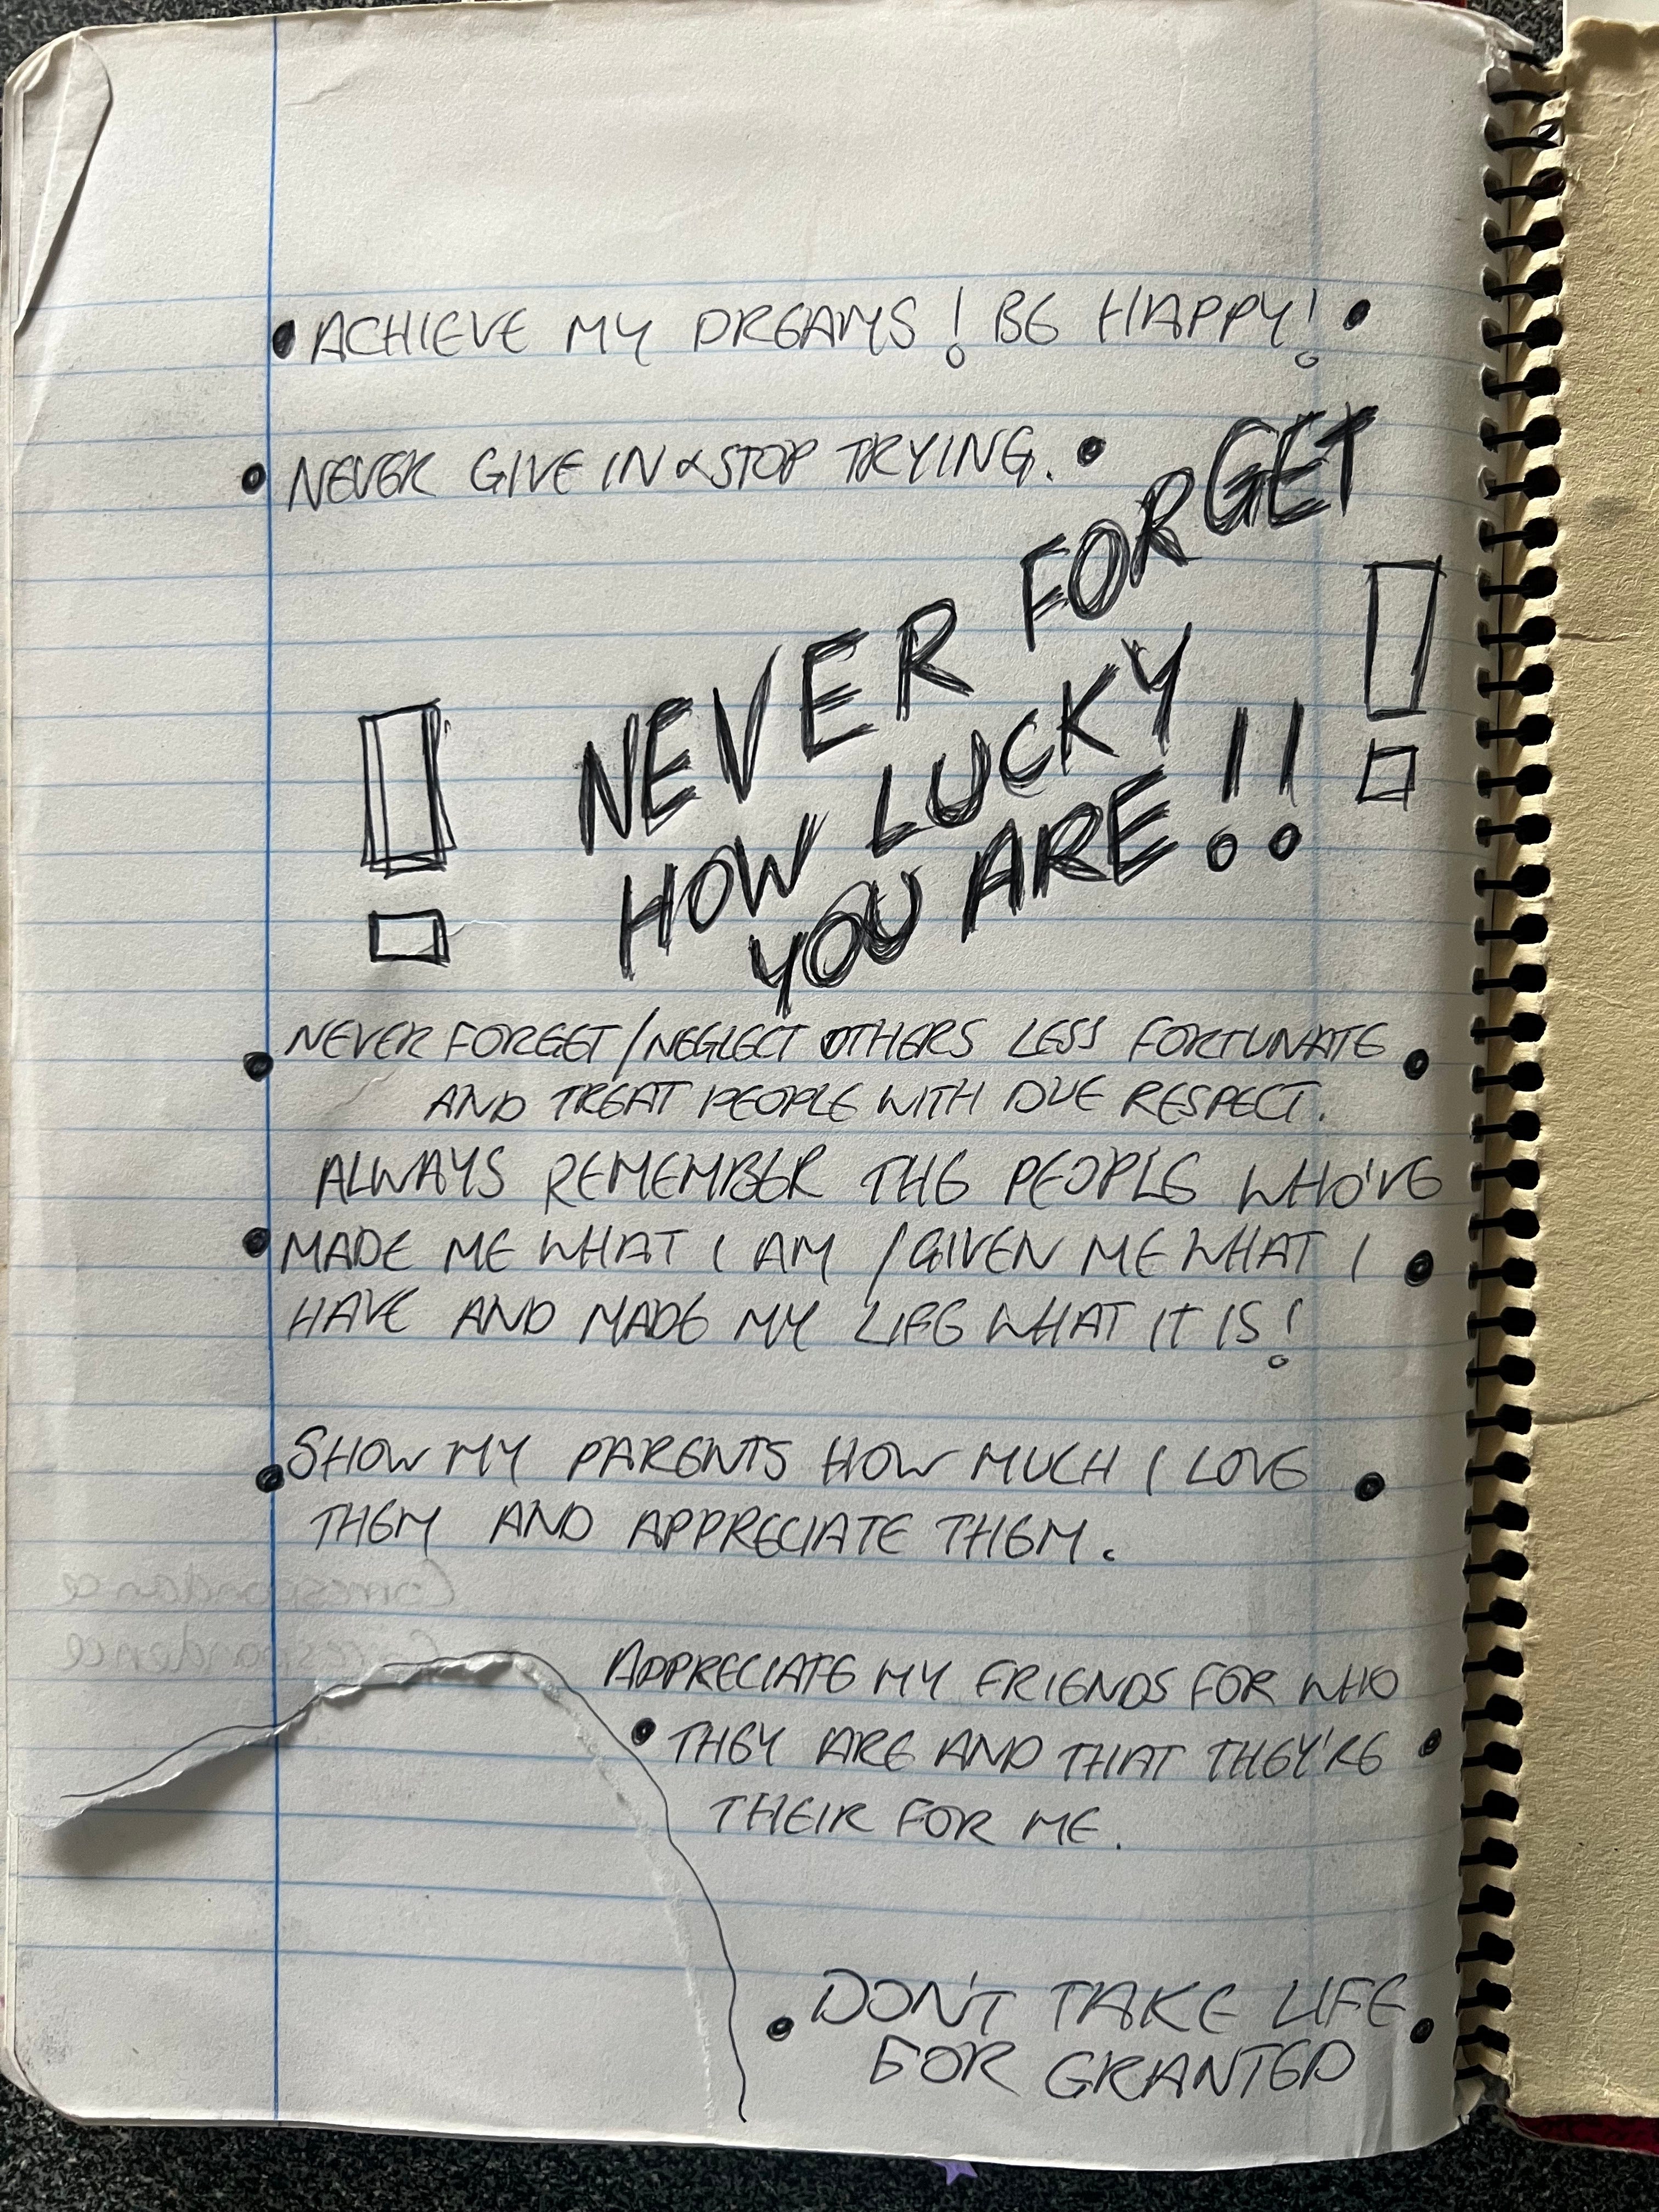 • ACHIEVE MY DREAMS! BE HAPPY! •
• NEVER GIVE IN & STOP TRYING. •
NEVER FORGET
HOW LUCKY
YOU ARE!!
! !
NEVER FORGET/NEGLECT OTHERS LESS FORTUNATE
AND TREAT PEOPLE WITH DUE RESPECT.
ALWAYS REMEMBER THE PEOPLE WHO'VE
• MADE ME WHAT I AM /GIVEN ME WHAT I •
HAVE AND MADE MY LIFE WHAT IT IS!
• SHOW MY PARENTS HOW MUCH I LOVE •
THEM AND APPRECIATE THEM.
Correspondance
Correspondence
APPRECIATE MY FRIENDS FOR WHO
• THEY ARE AND THAT THEY'RE •
THEIR FOR ME.
• DON'T TAKE LIFE •
FOR GRANTED